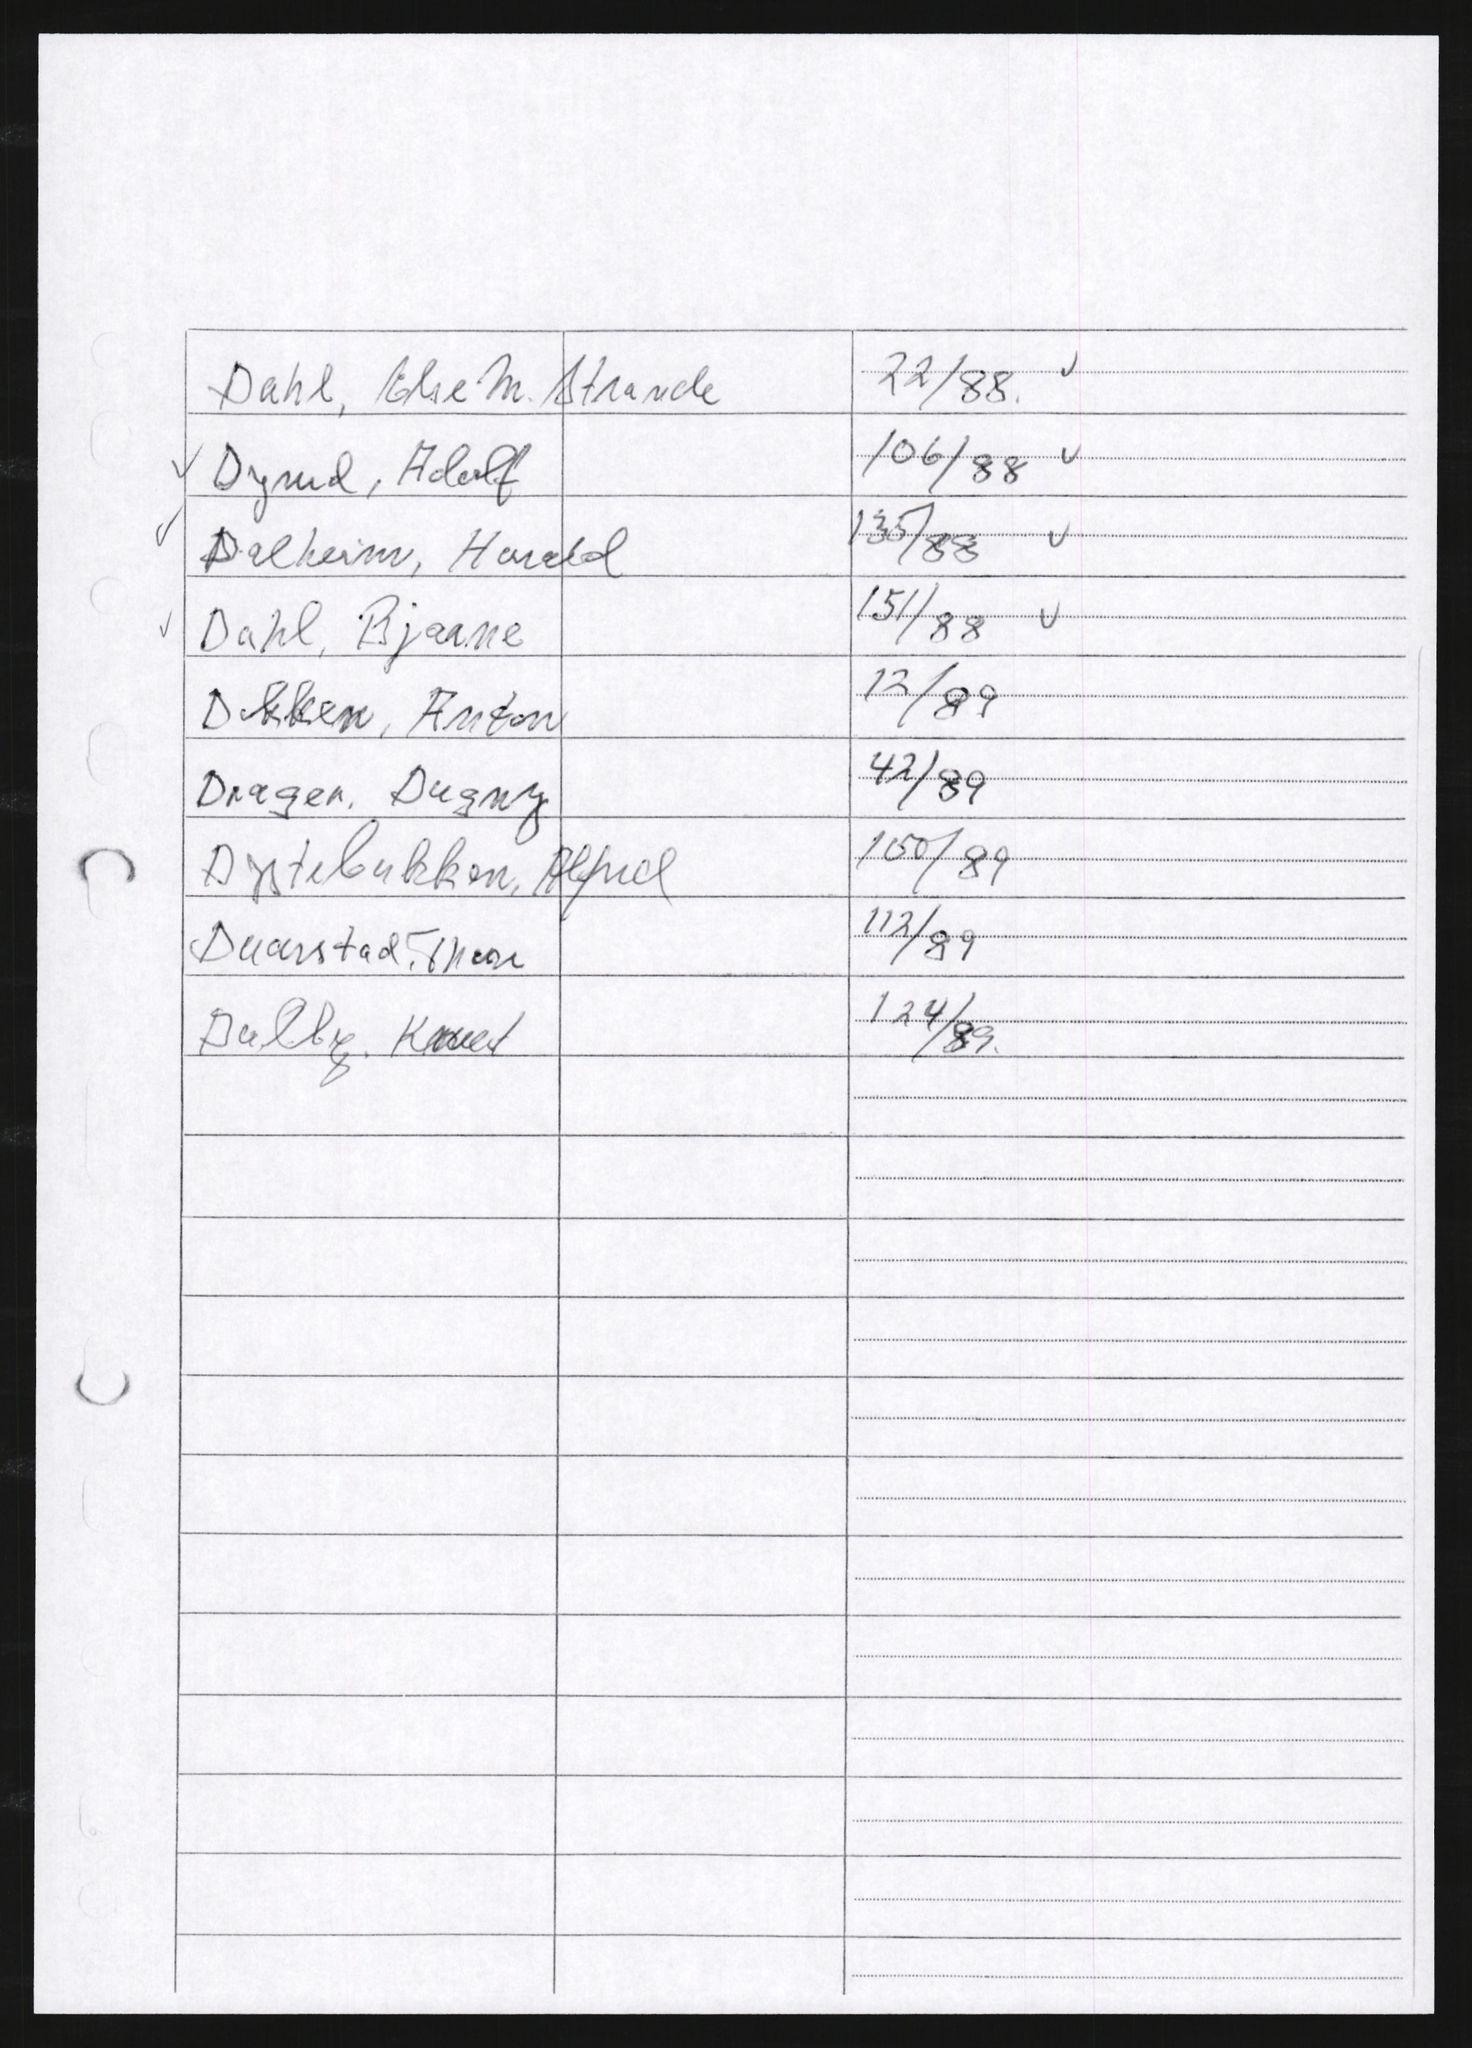 Dahl, Else M. Strande 22/88. ✓
✓ Dyrud, Adolf 106/88 ✓
✓ Dalheim, Harald 135/88 ✓
✓ Dahl, Bjarne 151/88 ✓
Dokken, Anton 12/89
Drager, Dagny 42/89
Dystebukken, Alfred 100/89
112/89
Dalby. Knut 124/89.